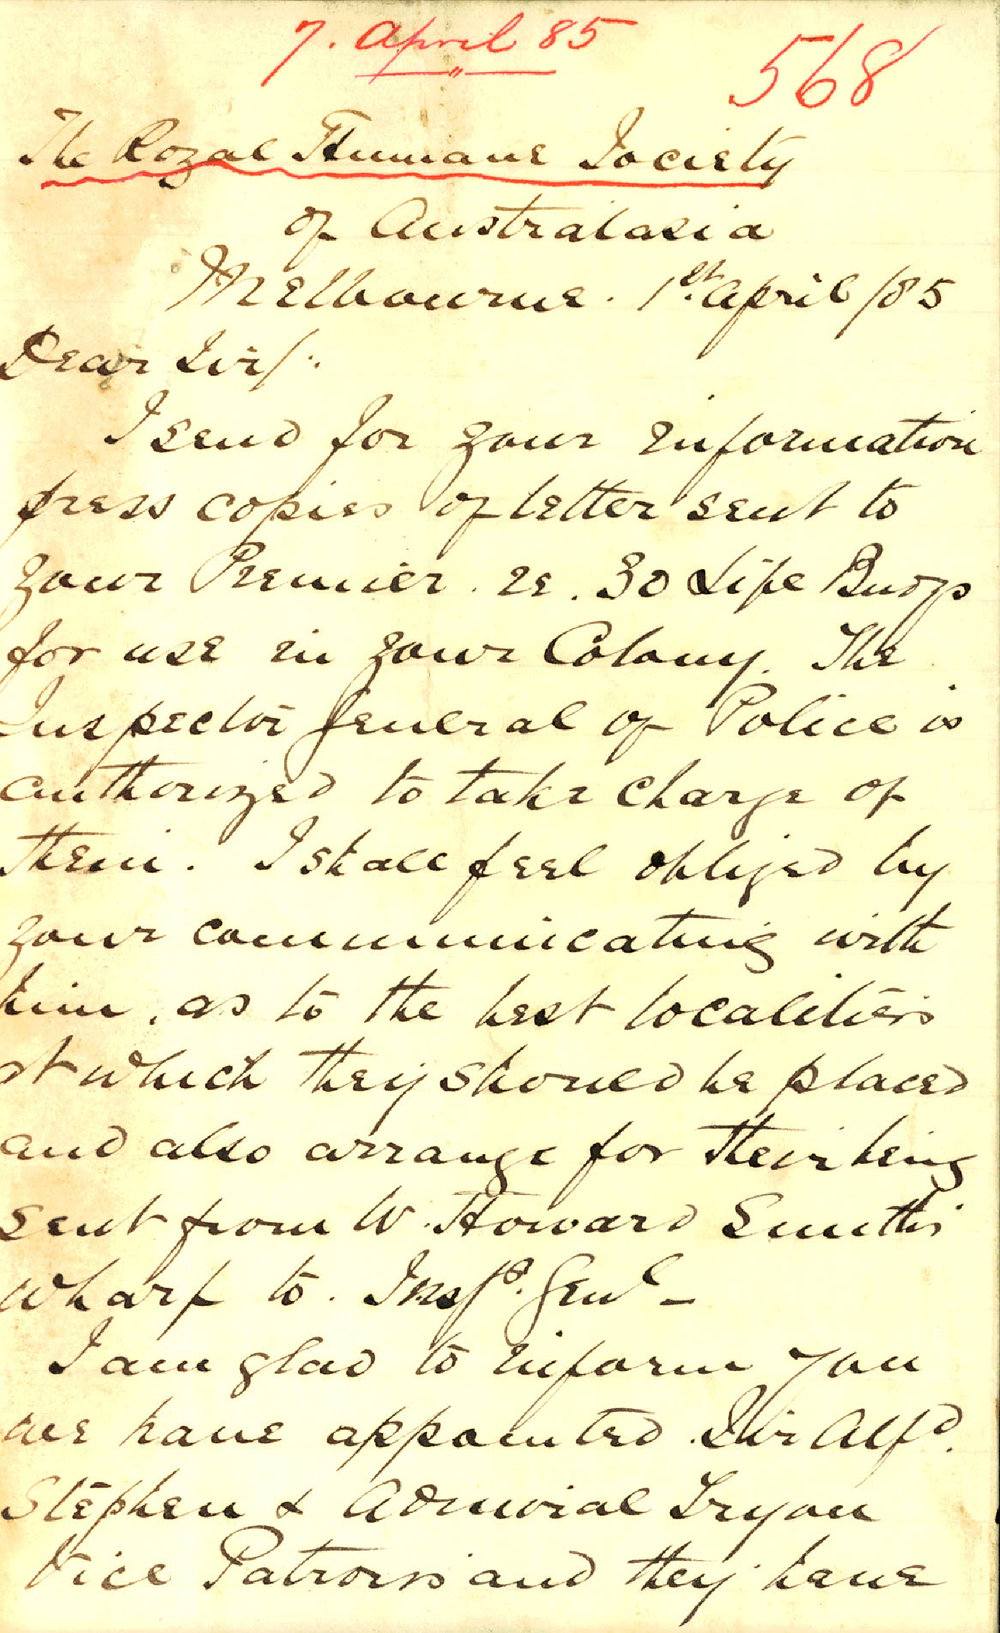 7. April 85
568
The Royal Humane Society
of Australasia
Melbourne. 1st. April /85
Dear Sir/.
I send for your information
press copies of letter sent to
your Premier. re. 30 Life Buoys
for use in your Colony. The
Inspector General of Police is
authorized to take charge of
them. I shall feel obliged by
your communicating with
him, as to the best localities
at which they should be placed
and also arrange for their being
sent from W. Howard Smith's
wharf to. Insp. Genl -
I am glad to inform you
we have appointed Sir Alfd.
Stephen & Admiral Tryon
Vice Patrons and they have